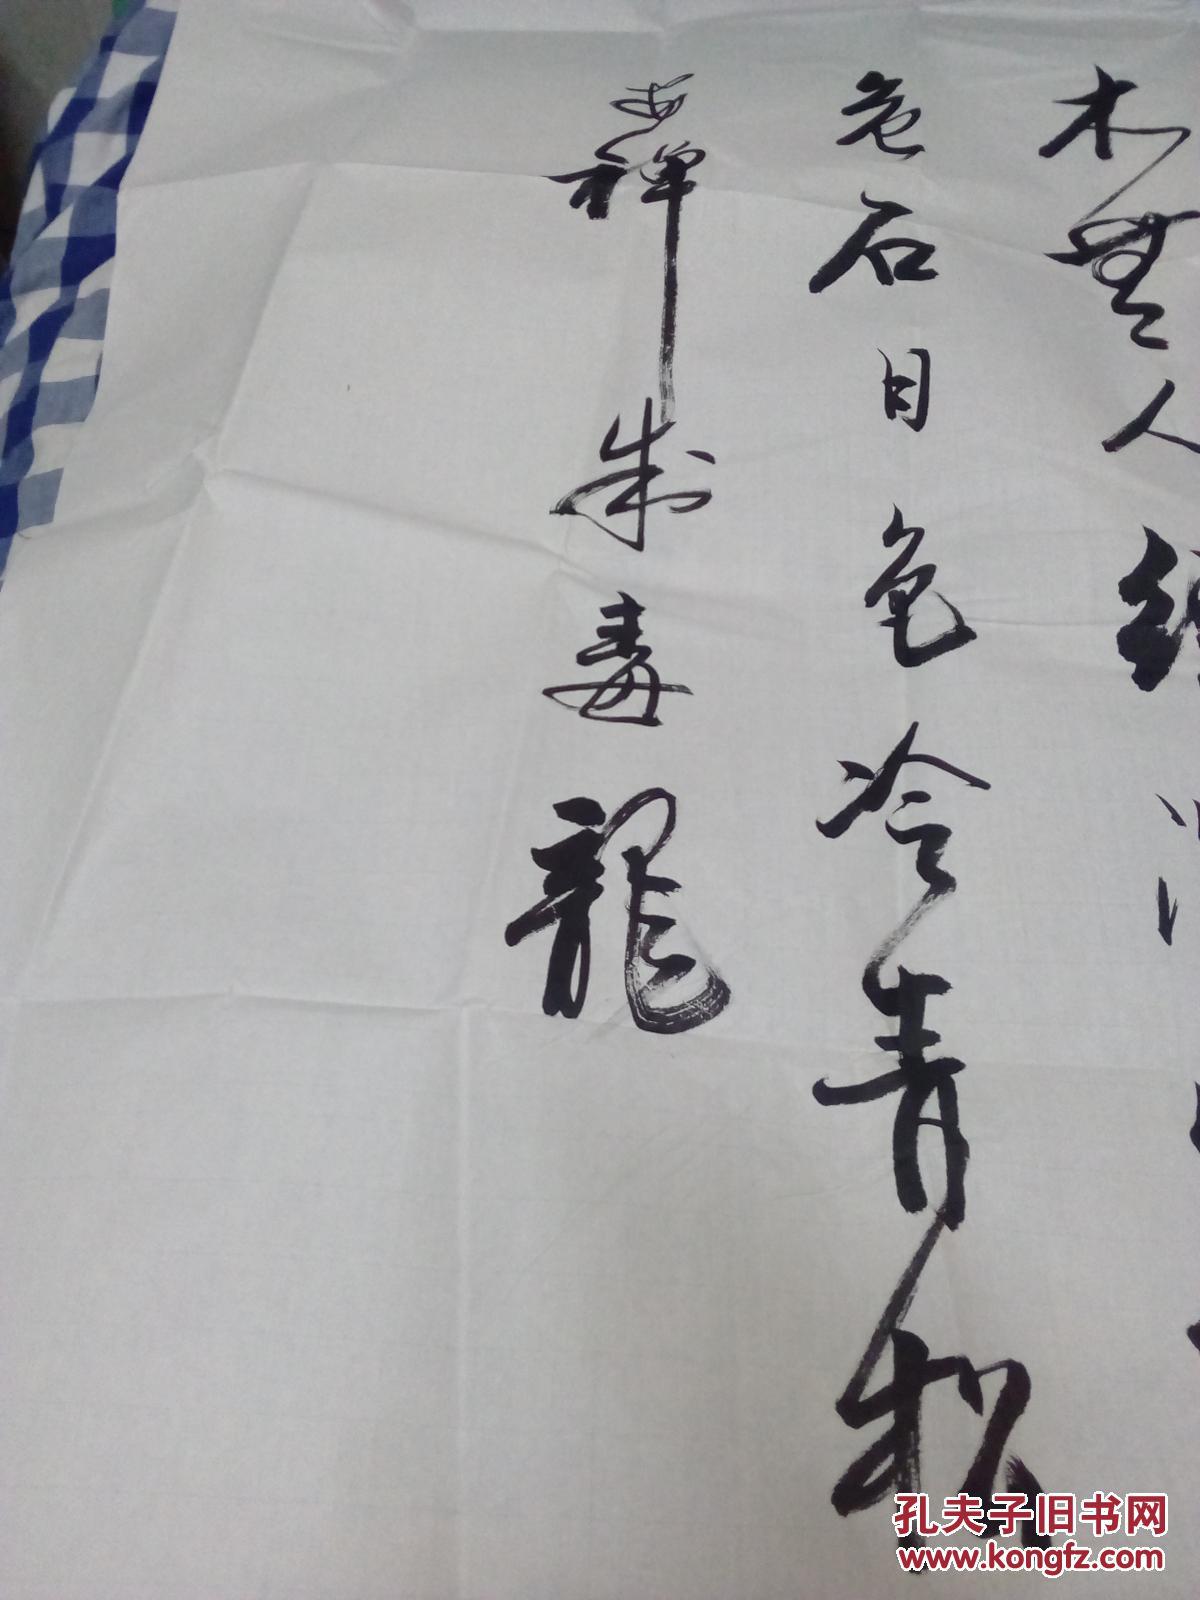 木無人経
危石日色冷青松
安禅制毒龍
孔夫子旧书网
www.kongfz.com